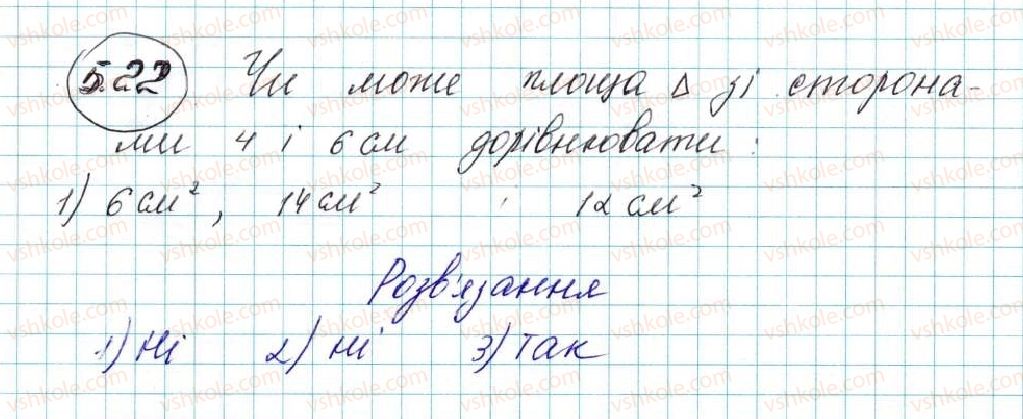 522 Чи може площа Δ зі сторона-
ми 4 і 6 см дорівнювати:
1) 6 см², 14 см² ; 12 см²
Розв'язання
1) Ні 2) ні 3) так